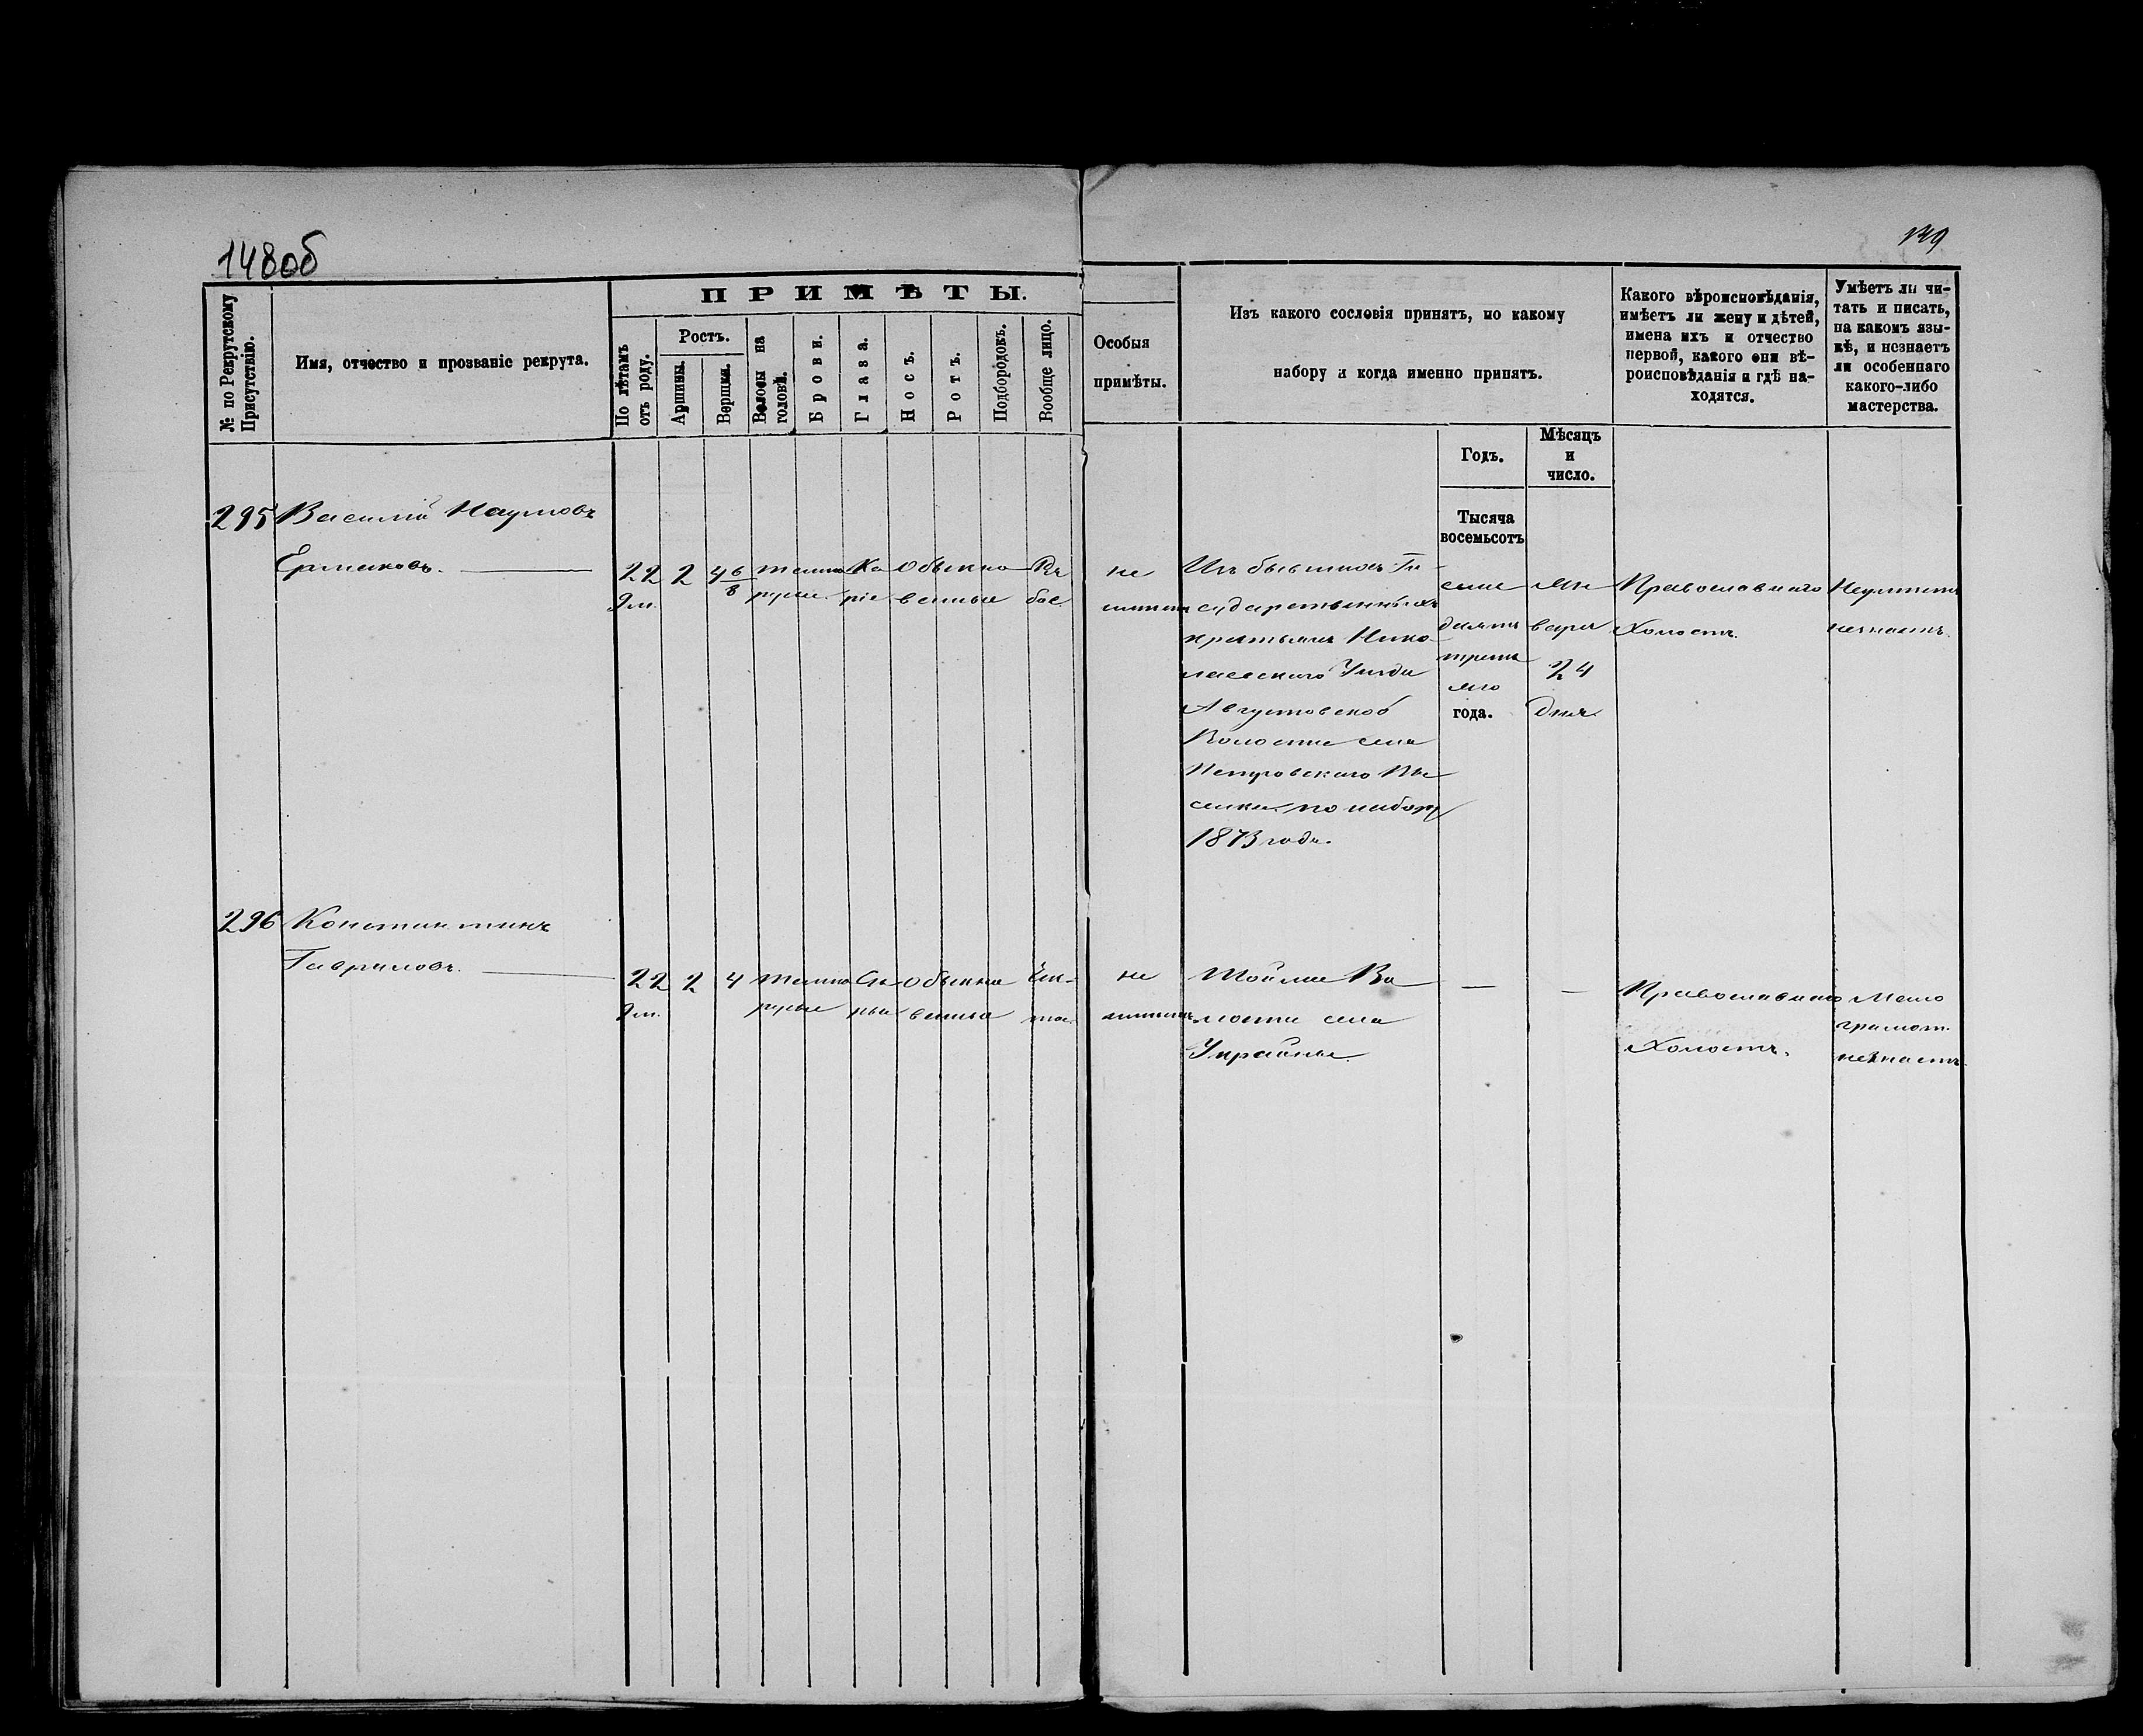 148об
149
№ по Рекрутскому
Присутствію.
Имя, отчество и прозваніе рекрута.
ПРИМѢТЫ.
По лѣтамъ
отъ роду.
Ростъ.
Аршины.
Вершки.
Волосы на
головѣ.
Брови.
Глаза.
Носъ.
Ротъ.
Подбородокъ.
Вообще лицо.
Особыя
примѣты.
Изъ какого сословія принятъ, по какому
набору и когда именно принятъ.
Какого вѣроисповѣданія,
имѣетъ ли жену и дѣтей,
имена ихъ и отчество
первой, какого они вѣ-
роисповѣданія и гдѣ на-
ходятся.
Умѣетъ ли чи-
тать и писать,
на какомъ язы-
кѣ, и незнаетъ
ли особеннаго
какого-либо
мастерства.
Годъ.
Мѣсяцъ
и
число.
Тысяча
восемьсотъ
295 Василій Наумовъ
Ермаковъ.
22 2 4 6/8 темно Ка Обыкно Ря
русые рiе венные бое
не
имѣетъ
Изъ бывшихъ Го
сударственныхъ
крестьянъ Нико
лаевскаго Уѣзда
Августовской
Волости села
Петровскаго Вы
селка по набору
1873 года.
семь
десятъ
треть
яго
года.
Ян
варя
24
дня
Православнаго
Холостъ.
Неумѣетъ
незнаетъ.
296 Константинъ
Гавриловъ.
22 2 4 темно Сѣ Обыкно Чис
русые рые венные тое
не
имѣетъ
Тойже Во
лости села
Украинки.
— —
Православнаго
Холостъ.
Мало
грамот.
незнаетъ.